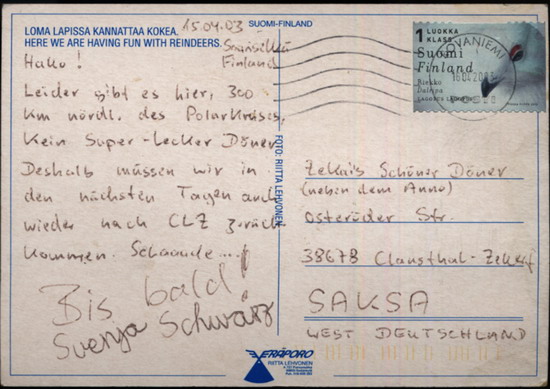 LOMA LAPISSA KANNATTAA KOKEA.
HERE WE ARE HAVING FUN WITH REINDEERS.
15.04.03
SUOMI-FINLAND
Finland
Hako!
Leider gibt es hier, 300
Km nördl. des Polarkreises,
Kein Super-Lecker Döner
Deshalb müssen wir in
den nächsten Tagen auch
wieder nach CLZ zurück
kommen. Schaade...!
Bis bald!
Svenja Schwarz
FOTO: RIITTA LEHVONEN
1 LUOKKA
KLASS
Suomi
Finland
Riekko
Dalripa
ROVANIEMI
16.04.2003
Zekais Schöner Döner
(neben dem Anno)
Osteröder Str.
38678 Clausthal-Zellerf
SAKSA
WEST DEUTSCHLAND
VERÄPORO
RIITTA LEHVONEN